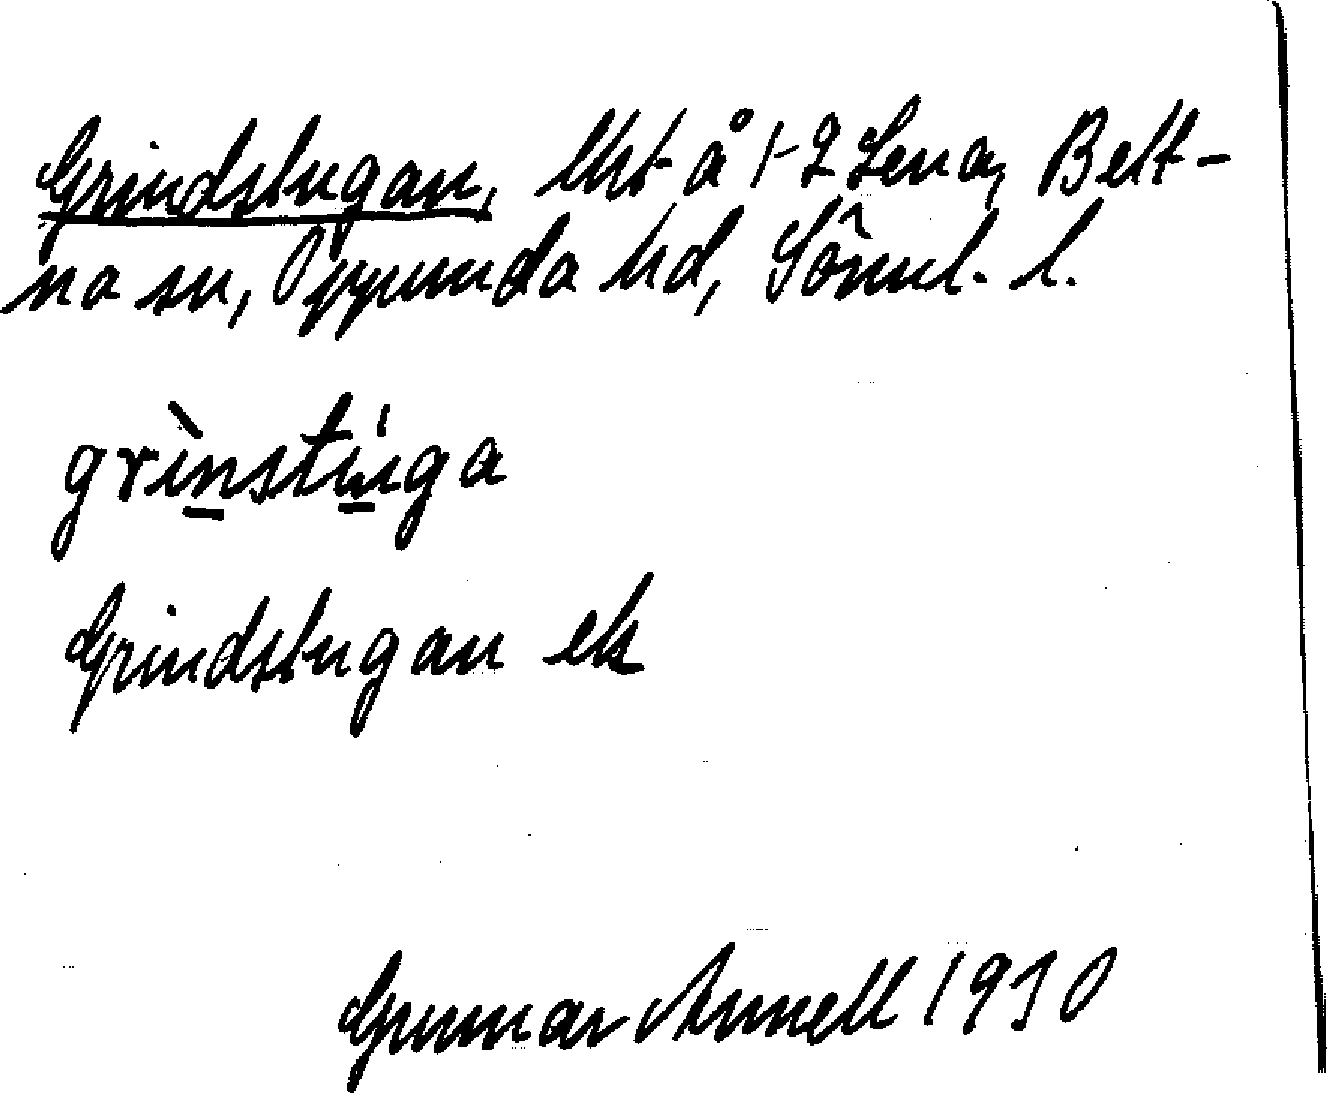 Grindstugan, lht å 1-2 Lena, Bett-
na sn, Oppunda hd, Sörml. l.
grìnstúga
Grindstugan ek
Gunnar Annell 1930